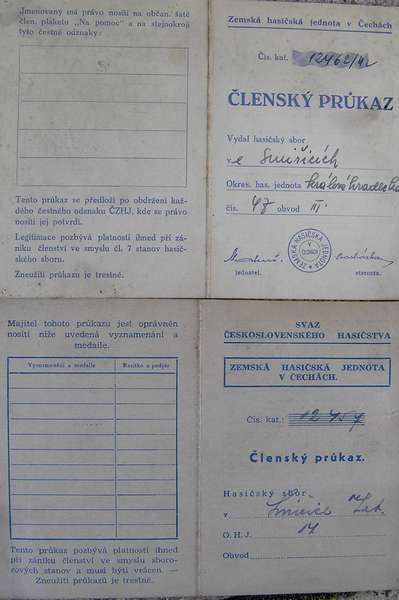 Jmenovaný má právo nositi na občan. šatě
člen. plaketu „Na pomoc" a na stejnokroji
tyto čestné odznaky:
Tento průkaz se předloží po obdržení kaž-
dého čestného odznaku ČZHJ, kde se právo
nositi jej potvrdí.
Legitimace pozbývá platnosti ihned při zá-
niku členství ve smyslu čl. 7 stanov hasič-
ského sboru.
Zneužití průkazu je trestné.
Zemská hasičská jednota v Čechách
Čís. kat. 12462/42
ČLENSKÝ PRŮKAZ
Vydal hasičský sbor
ve Smiřicích
Okres. has. jednota Králové Hradec
čís. 47 obvod III.
ZEMSKÁ HASIČSKÁ JEDNOTA
V ČECHÁCH
jednatel. starosta.
Majitel tohoto průkazu jest oprávněn
nositi níže uvedená vyznamenání a
medaile.
Vyznamenání a medaile Razítko a podpis
Tento průkaz pozbývá platnosti ihned
při zániku členství ve smyslu sboro-
rových stanov a musí býti vrácen. —
Zneužití průkazů je trestné.
SVAZ
ČESKOSLOVENSKÉHO HASIČSTVA
ZEMSKÁ HASIČSKÁ JEDNOTA
V ČECHÁCH.
Čís. kat.: 12457
Členský průkaz.
Hasičský sbor
v Smiřice
O. H. J. 17
Obvod